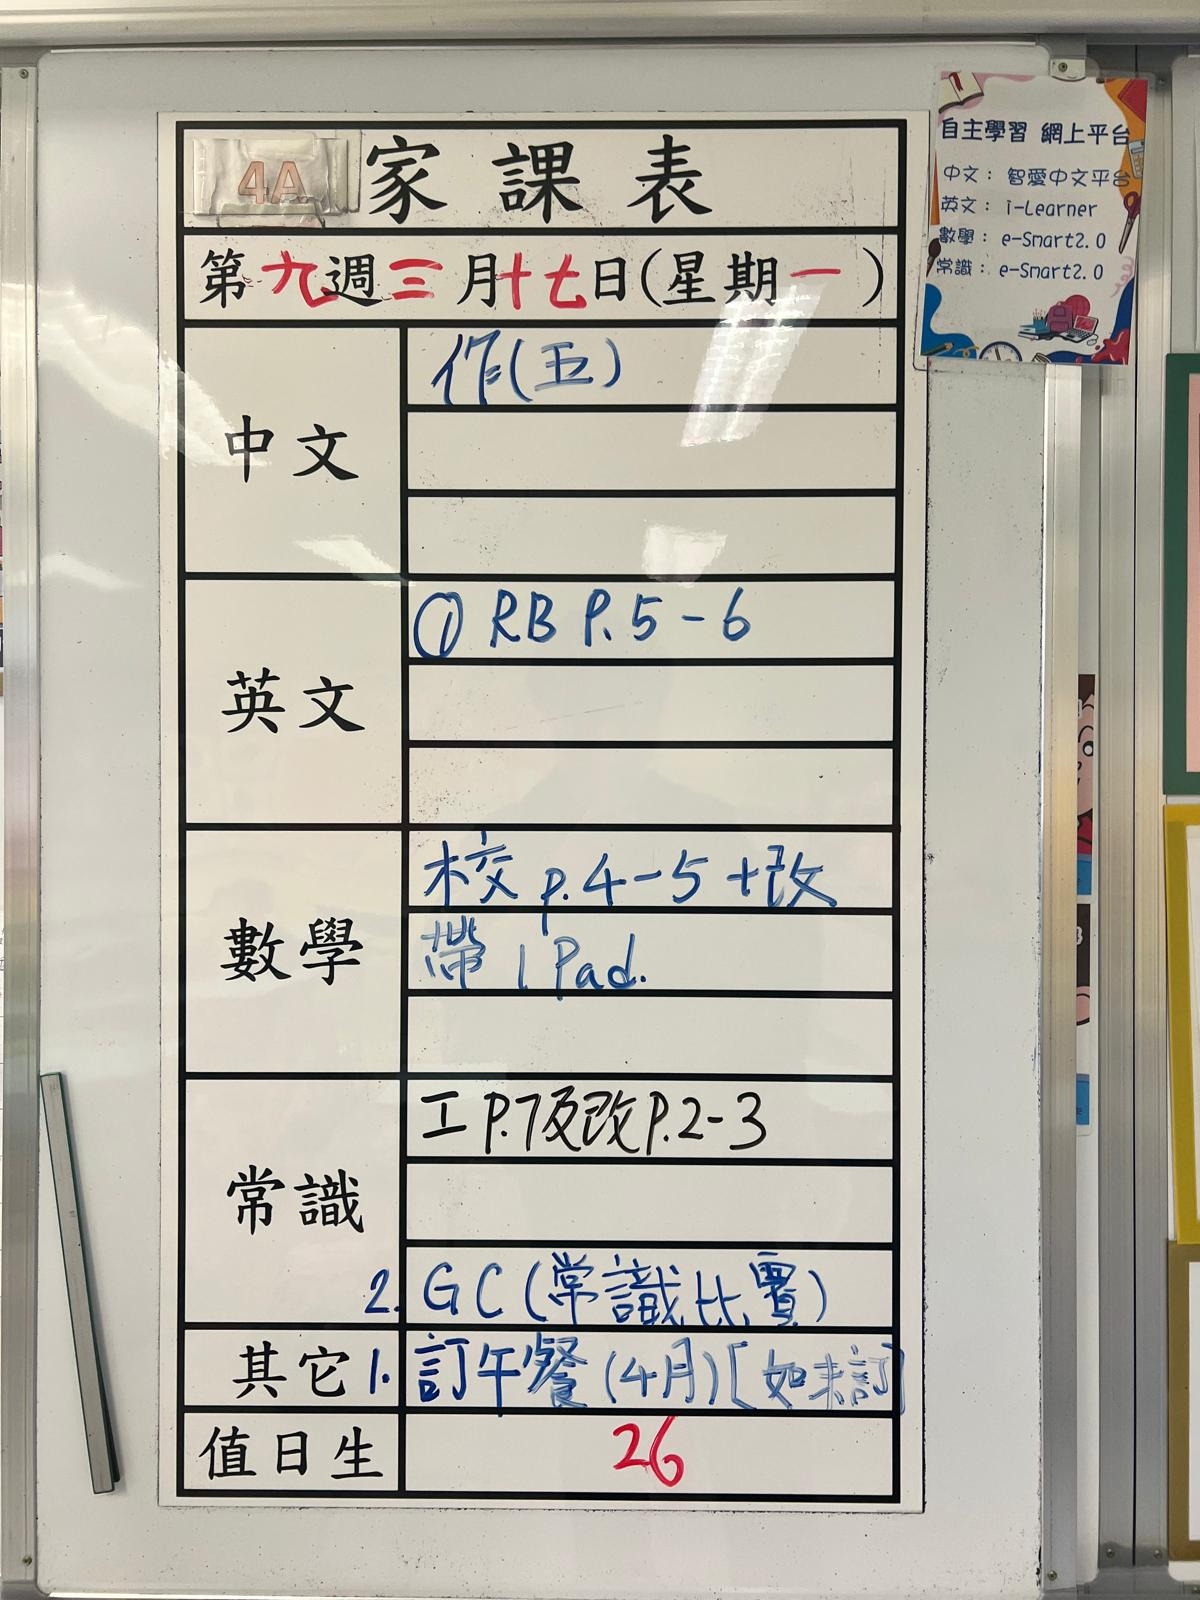 4A 家課表
第九週三月十七日(星期一)
中文
作(五)
英文
① RB P.5-6
數學
校 p.4-5 +改
帶 IPad.
常識
工 P.7及改P.2-3
2. GC(常識比賽)
其它
1. 訂午餐(4月)[如未訂]
值日生
26
自主學習 網上平台
中文： 智愛中文平台
英文： i-Learner
數學： e-Smart2.0
常識： e-Smart2.0